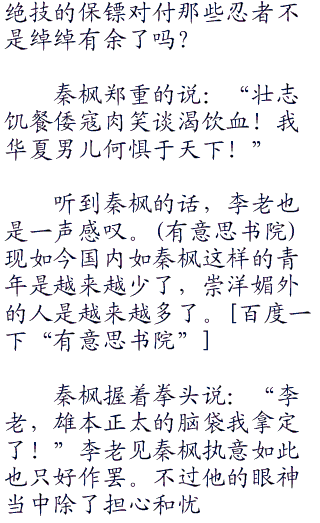 绝技的保镖对付那些忍者不
是绰绰有余了吗？
秦枫郑重的说：“壮志
饥餐倭寇肉笑谈渴饮血！我
华夏男儿何惧于天下！”
听到秦枫的话，李老也
是一声感叹。(有意思书院)
现如今国内如秦枫这样的青
年是越来越少了，崇洋媚外
的人是越来越多了。[百度一
下“有意思书院”]
秦枫握着拳头说：“李
老，雄本正太的脑袋我拿定
了！”李老见秦枫执意如此
也只好作罢。不过他的眼神
当中除了担心和忧